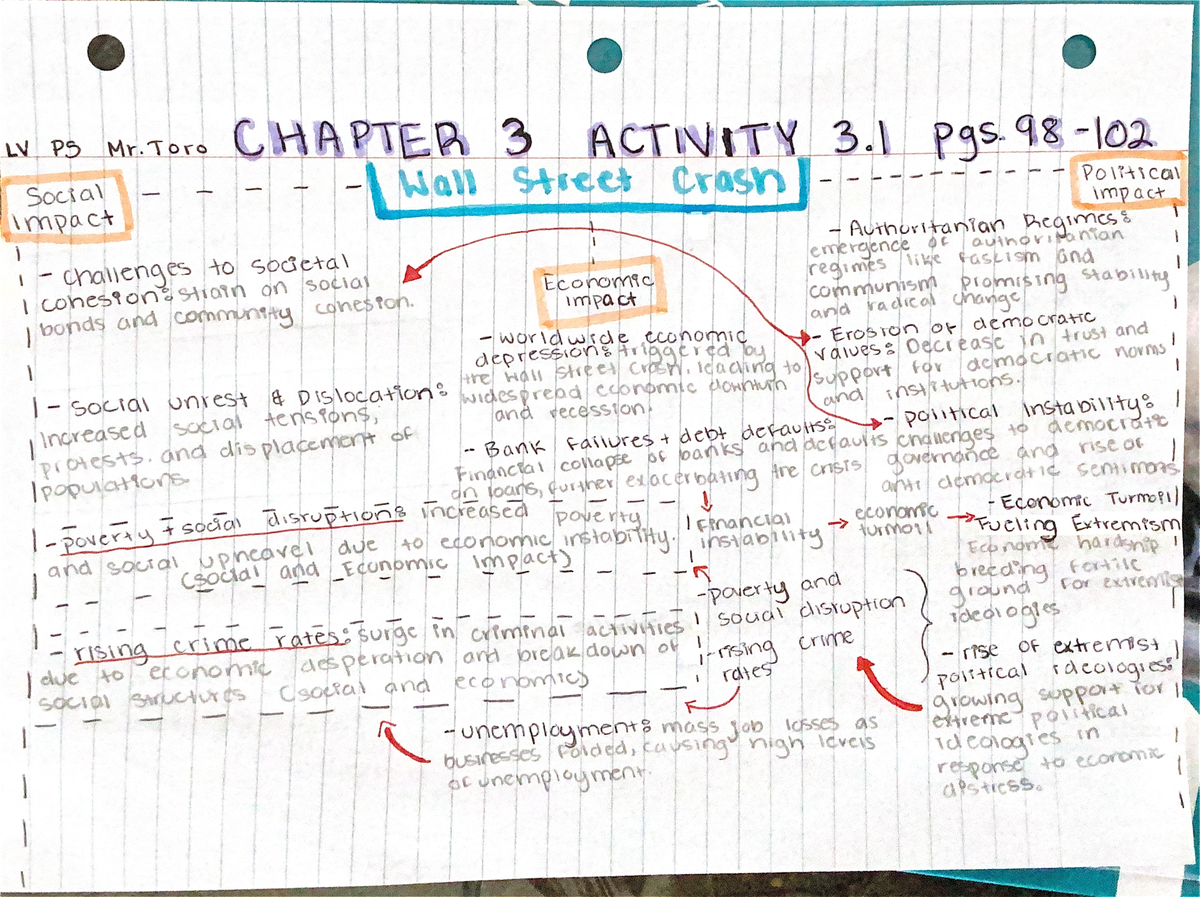 LV P5 Mr. Toro CHAPTER 3 ACTIVITY 3.1 pgs. 98-102
Wall Street Crash
Social
Impact
- Challenges to societal
cohesion: strain on social
bonds and community cohesion.
- Social unrest & Dislocation:
Increased social tensions,
protests. and displacement of
populations
- poverty + social disruption: increased poverty
and social upheavel due to economic instability.
(social and Economic Impact)
- rising crime rates: surge in criminal activities
due to economic desperation and breakdown of
social structures (social and economic)
Economic
impact
- worldwide economic
depression: triggered by
the Wall Street Crash, leading to
widespread economic downturn
and recession.
- Bank failures + debt defaults:
Financial collapse of banks and defaults
on loans, further exacerbating the crisis
Financial
instability → economic
turmoil →
- poverty and
social disruption
- rising crime
rates
- unemployment: mass job losses as
businesses folded, causing high levels
of unemployment.
Political
Impact
- Authoritanian Regimes:
emergence of authoritanian
regimes like fascism and
communism promising stability
and radical change
- Erosion of democratic
values: Decrease in trust and
support for democratic norms
and institutions.
- political Instability:
challenges to democratic
governance and rise of
anti democratic sentiments
- Economic Turmoil
Fueling Extremism
Economic hardship
breeding fertile
ground for extremist
ideologies
- rise of extremist
political ideologies:
growing support for
extreme political
ideologies in
response to economic
distress.